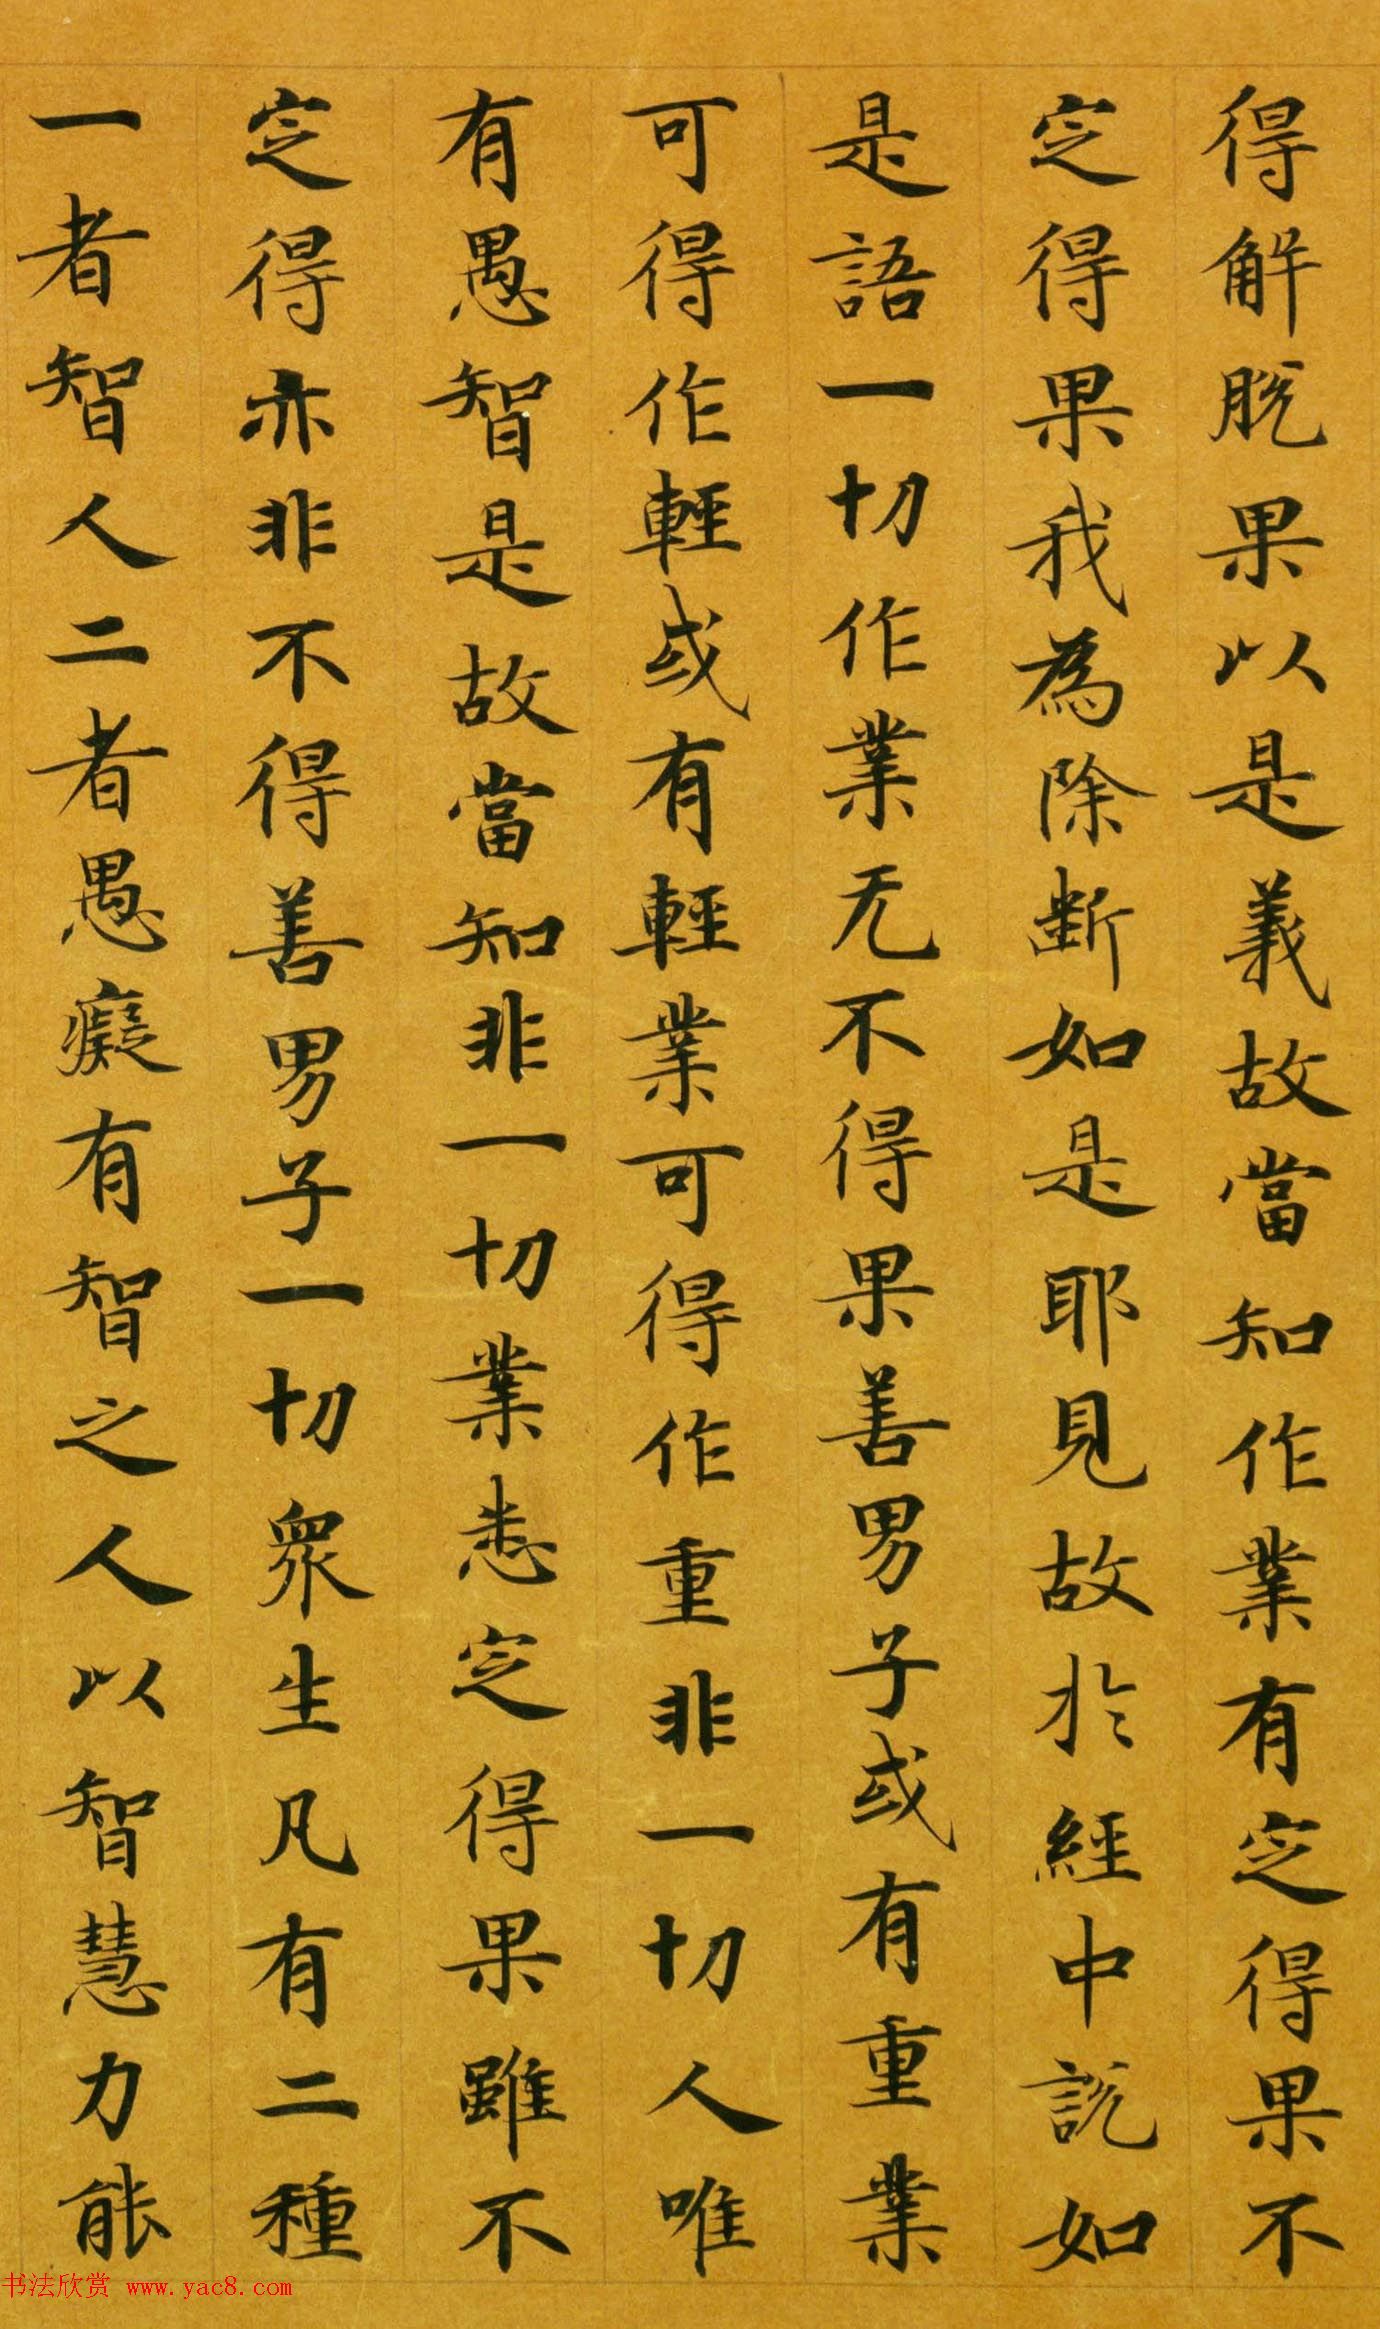 得解脫果以是義故當知作業有定得果不
定得果我為除斷如是耶見故於經中說如
是語一切作業无不得果善男子或有重業
可得作輕或有輕業可得作重非一切人唯
有愚智是故當知非一切業悉定得果雖不
定得亦非不得善男子一切衆生凡有二種
一者智人二者愚癡有智之人以智慧力能
书法欣赏 www.yac8.com